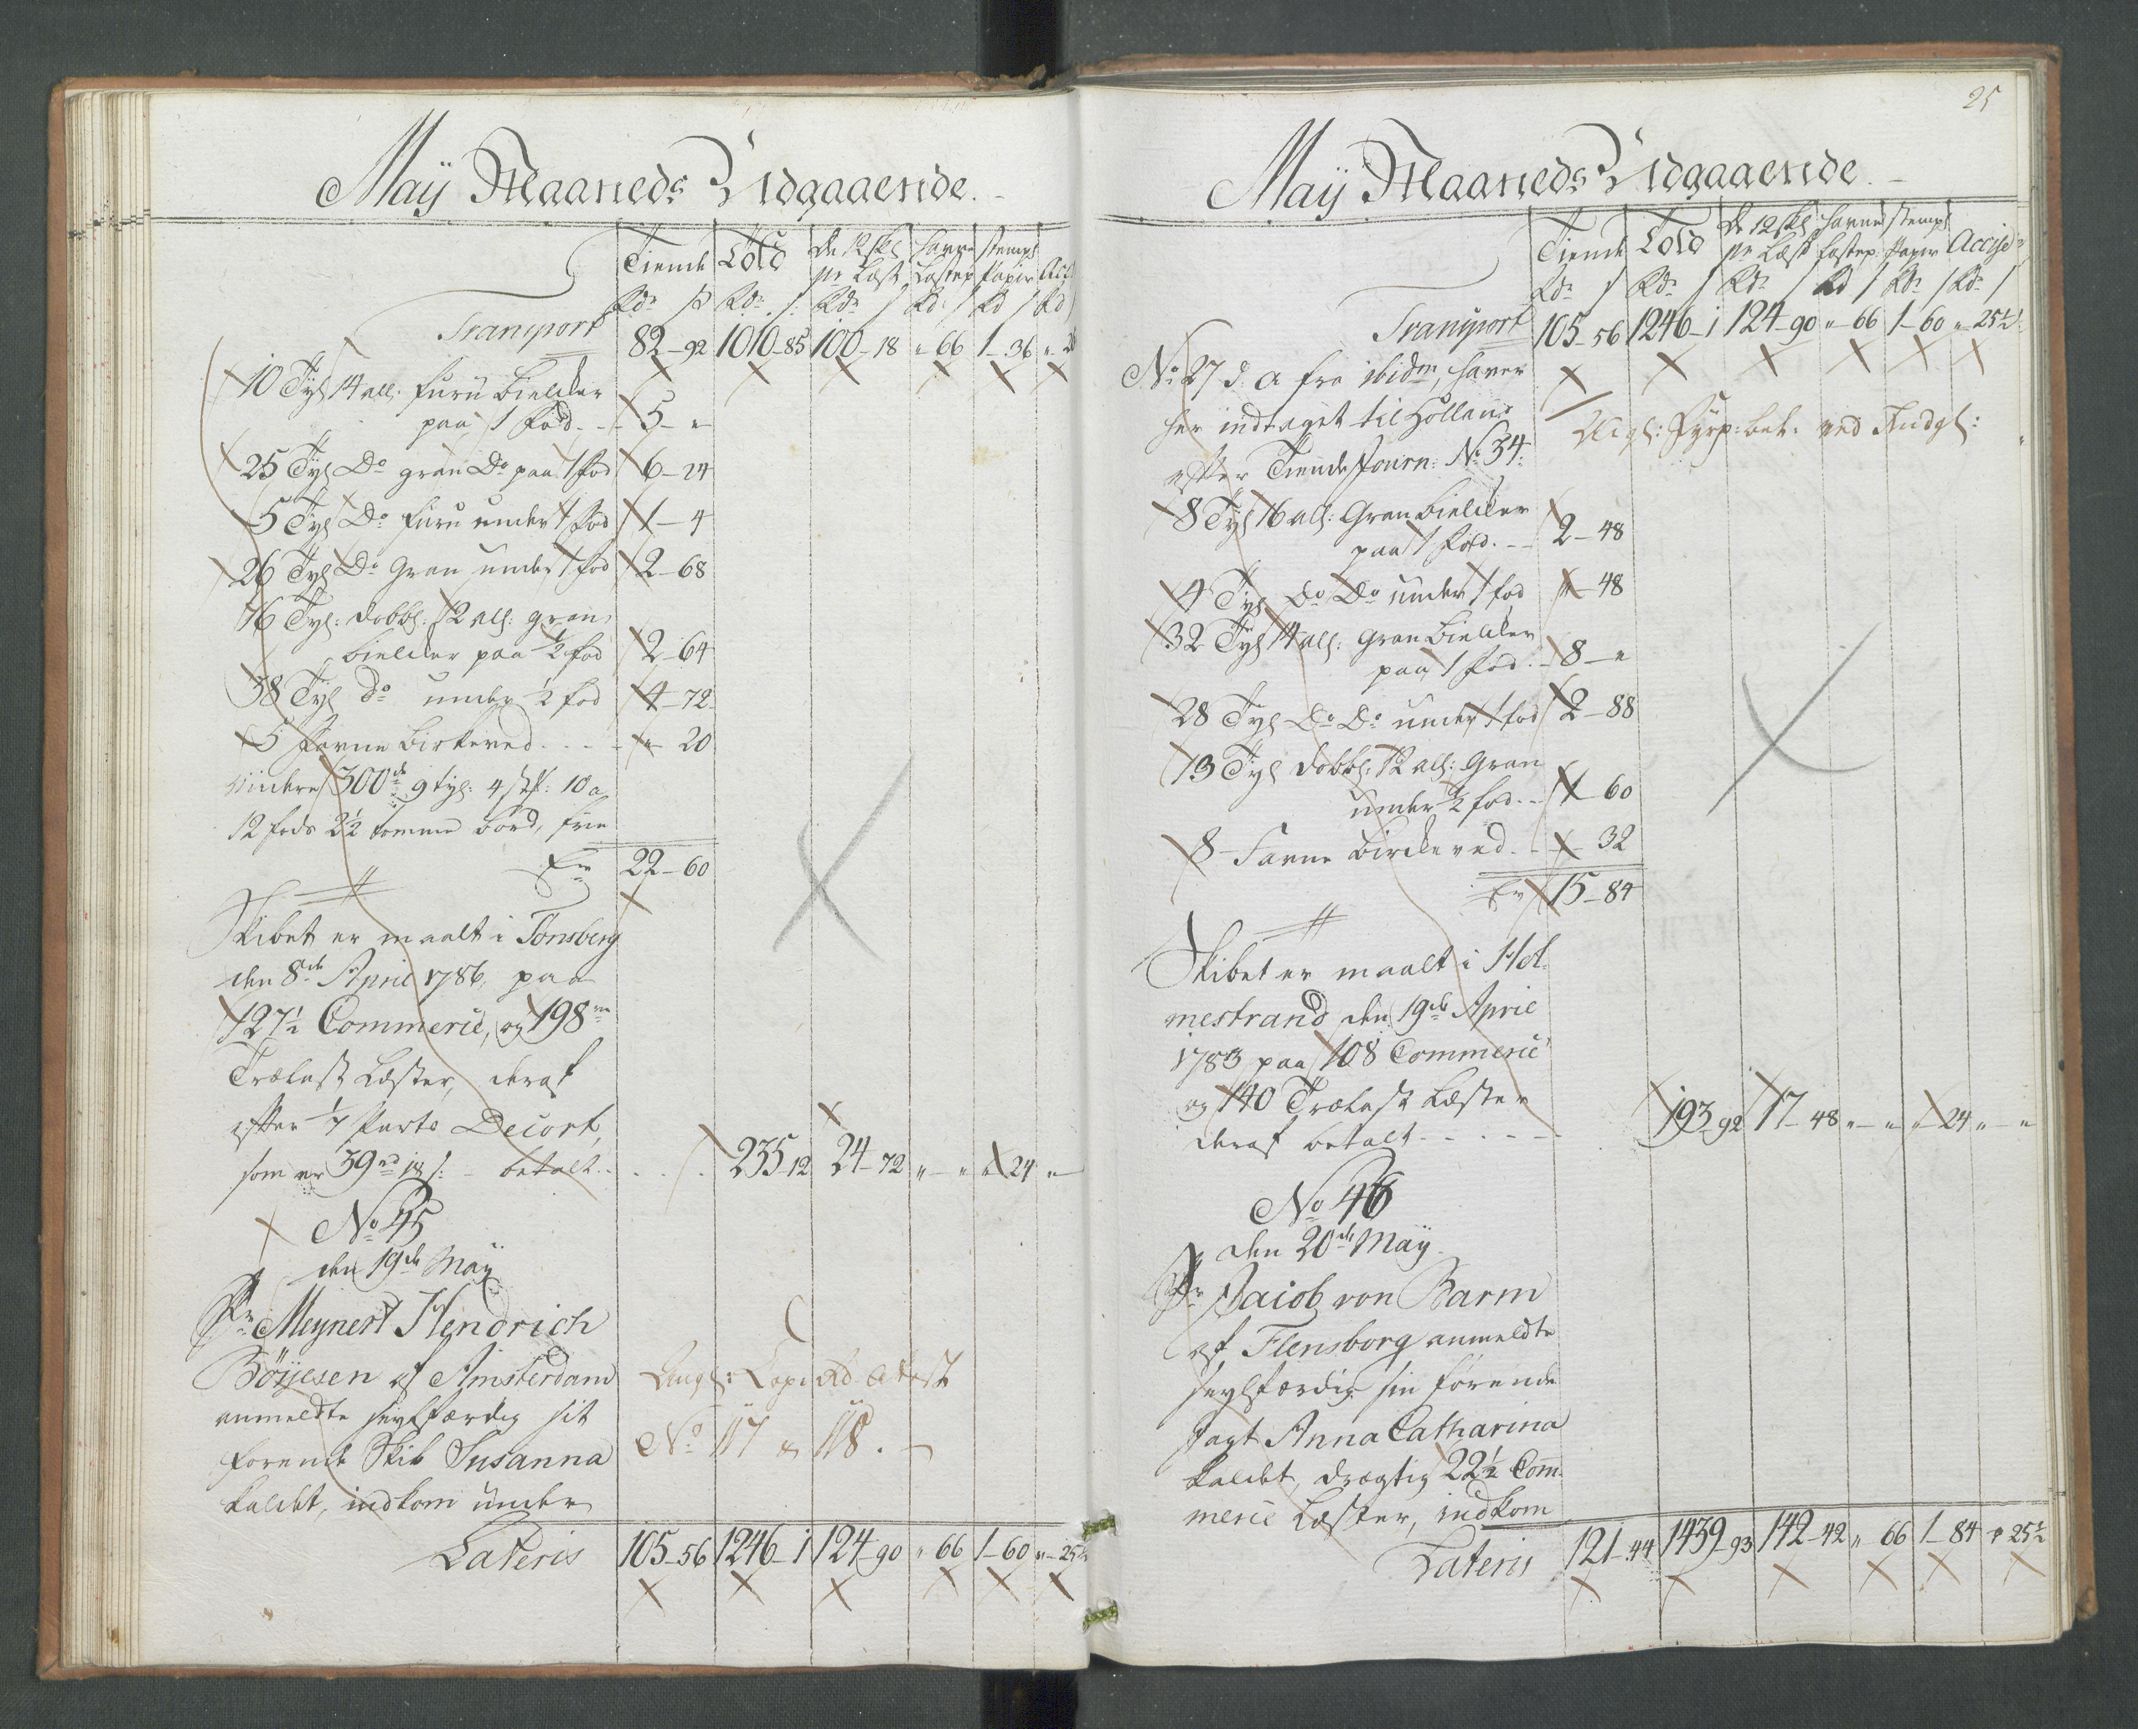 Maÿ Maaneds Udgaaende.
Tiende Told De 12 skl Havne Stempl
pr Læst Lastep Papiir Acc
Rdr s Rdr s Rdr s Rd s Rd s Rd s
Transport 82-92 1010-85 100-18 " 66 1-36 "
10 Tyl 14 all: furu Bielcker
paa 1 fod 5- "
25 Tyl Do gran Do paa 1 fod 6-24
5 Tyl Do furu under 1 fod 1-4
26 Tyl Do Gran under 1 fod 2-68
16 Tyl: dobbl: 12 all: gran
bielcker paa 1/2 fod 2-64
38 Tyl do under 1/2 fod 4-72
5 favne birkeved " 20
300de 9 tyl: 4 stk: 10 a
12 fods 2½ tomme bord, frie
Er 22-60
Skibet er maalt i Tønsberg
den 8de April 1786, paa
127½ Commerce, og 198
Trælast Læster, deraf
efter 1/7 Parts Decort,
som er 39rd 18 s: betalt 235-12 24-72 " - " " 24 "
No 45
den 19de May
Skr Meynert Hendrich
Böÿesen af Amsterdam
anmeldte seylfærdig sit
førende Skib Susanna
kaldet, indkom under
No 117 & 118.
Lateris 105-56 1246-1 124-90 " 66 1-60 " 25½
25
Maÿ Maaneds Udgaaende.
Tiende Told De 12 skl Havne Stempl
pr Læst Lastep Papir Accise
Rdr s Rdr s Rdr s Rd s Rdr s Rdr s
Transport 105-56 1246-1 124-90 " 66 1-60 " 25½
No 27 d: a fra ibidm, haver
her indtaget til Holland
efter Tiende Journ: No 34:
Fyrp: bet: ved Indgl:
8 Tyl 16 all: Gran Bielcker
paa 1 fod 2-48
4 Tyl Do Do under 1 fod " 48
32 Tyl 14 all: gran Bielcker
paa 1 fod 8- "
28 Tyl Do Do under 1 fod 2-88
13 Tyl dobbl: 12 all: Gran
under ½ fod 1-60
8 Favne Birckeved 32
Er 15-84
Skibet er maalt i Hol-
mestrand den 19de April
1783 paa 108 Commerce
og 140 Trælast Læster
deraf betalt 193-92 17-48 " - " " 24 " - "
No 46
den 20de Maÿ
Skr Jacob von Barm
af Flensborg anmeldte
seylfærdig sin førende
Jagt Anna Catharina
kaldet, drægtig 22½ Com-
merce Læster, indkom
Lateris 121-44 1439-93 142-42 " 66 1-84 " 25½